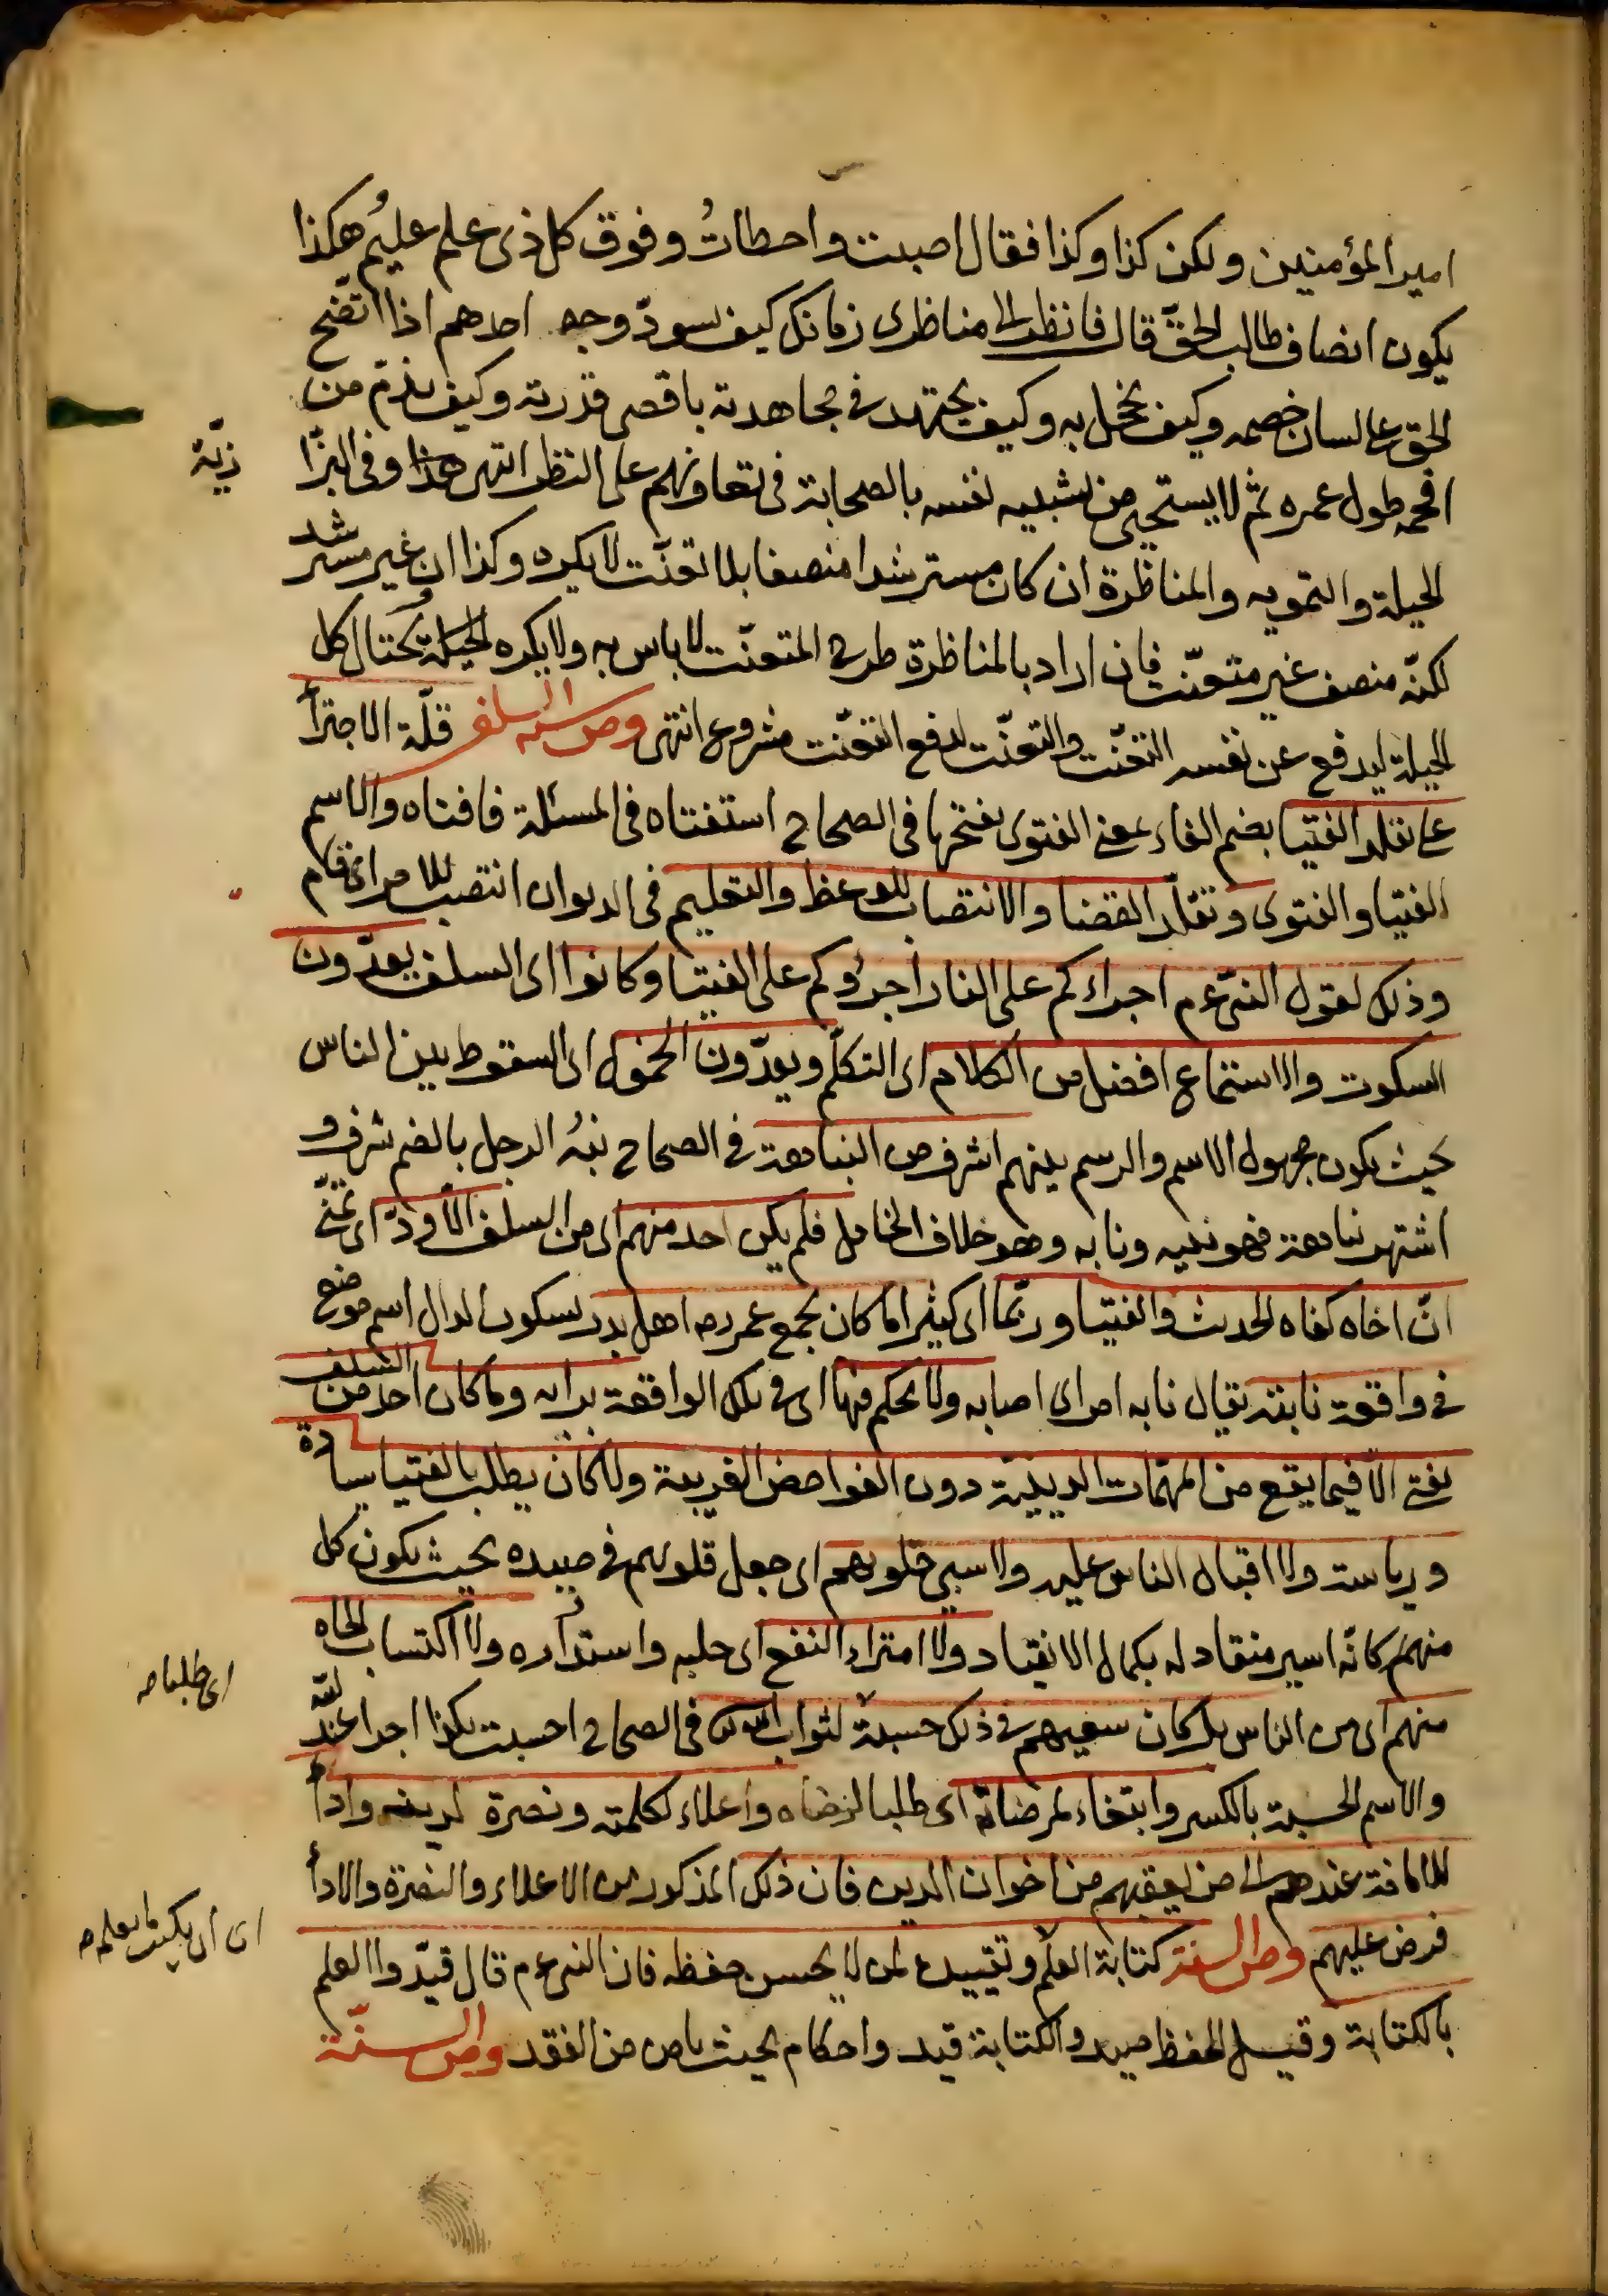 امير المؤمنين ولكن كذا وكذا فقال اصبت واخطأتُ وفوق كل ذى علم عليمُ هكذا
يكون انصاف طالب الحقّ قال فانظر الى مناظرى زمانك كيف يسودّ وجه احدهم اذا اتّضح
الحق على لسان خصمه وكيف يخجل به وكيف يجتهد فى مجاهدته باقصى قدرته وكيف يذم من
افحمه طول عمره ثم لا يستحيى من تشبيه نفسه بالصحابة فى تعاونهم على النظر انتهى هذا وفى البزّا
زيّة
الحيلة والتمويه والمناظرة ان كان مسترشدا منصفا بلا تعنّت لا يكره وكذا ان غير مسترشد
لكنّه منصف غير متعنّت فان اراد بالمناظرة طرح المتعنّت لا باس به ولا يكره الحيلة ويحتال كل
الحيلة ليدفع عن نفسه التعنّت والتعنّت لدفع التعنّت مشروع انتهى ومن سنّة السلف قلّة الاجترأ
على تقلد الفتيا بضم الفاء بمعنى الفتوى بفتحها فى الصحاح استفتاه فى المسئلة فافتاه والاسم
الفتيا والفتوى وتقلّد القضا والانتصاب للوعظ والتعليم فى الديوان انتصب للامر اى قام
وذلك لقول النبىّ عم اجراءكم على النار اجرؤكم على الفتيا وكانوا اى السلف يعدّون
السكوت والاستماع افضل من الكلام اى التكلّم ويعدّون الخمول اى السقوط بين الناس
بحيث يكون مجهول الاسم والرسم بينهم اشرف من النباهة فى الصحاح نبُه الرجل بالضم شرف و
اشتهر نباهة فهو نبيه ونابه وهو خلاف الخامل فلم يكن احد منهم اى من السلف الّا ودّ اى تمنّى
انّ اخاه كفاه الحديث والفتيا وربّما اى كثيرا ما كان يجمع عمر رضه اهل بدر بسكون الدال اسم موضع
فى واقعة نابته يقال نابه امر اى اصابه ولا يحكم فيها اى فى تلك الواقعة برايه وما كان احد من السلف
يفتى الّا فيما يقع من المهمّات الدينيّة دون الغوامض الغريبة ولا كان يطلب بالفتيا سيادة
ورياسة ولا اقبال الناس عليه ولا سبى قلوبهم اى جعل قلوبهم فى صيده بحيث يكون كل
منهم كانّه اسير منقاد له بكمال الانقياد ولا امتراء النفع اى جلبه واستدراره ولا اكتساب الجاه
منهم اى من الناس بل كان سعيهم فى ذلك حسبة لثواب الله فى الصحاح احسبت بكذا اجرا عند الله
اى طلبا
والاسم الحسبة بالكسر وابتغاء لمرضاته اى طلبا لرضاه واعلاء لكلمته ونصرة لدينه واداأ
للامانة عندهم الى من يعقبهم من اخوان الدين فان ذلك المذكور من الاعلاء والنصرة والادأ
فرض عليهم ومن السنة كتابة العلم وتقييده لمن لا يحسن حفظه فان النبى عم قال قيّدوا العلم
اى ان يكتب ما يعلمه
بالكتابة وقيل الحفظ صيد والكتابة قيد واحكام بحيث يامن من الفقد ومن السنّة